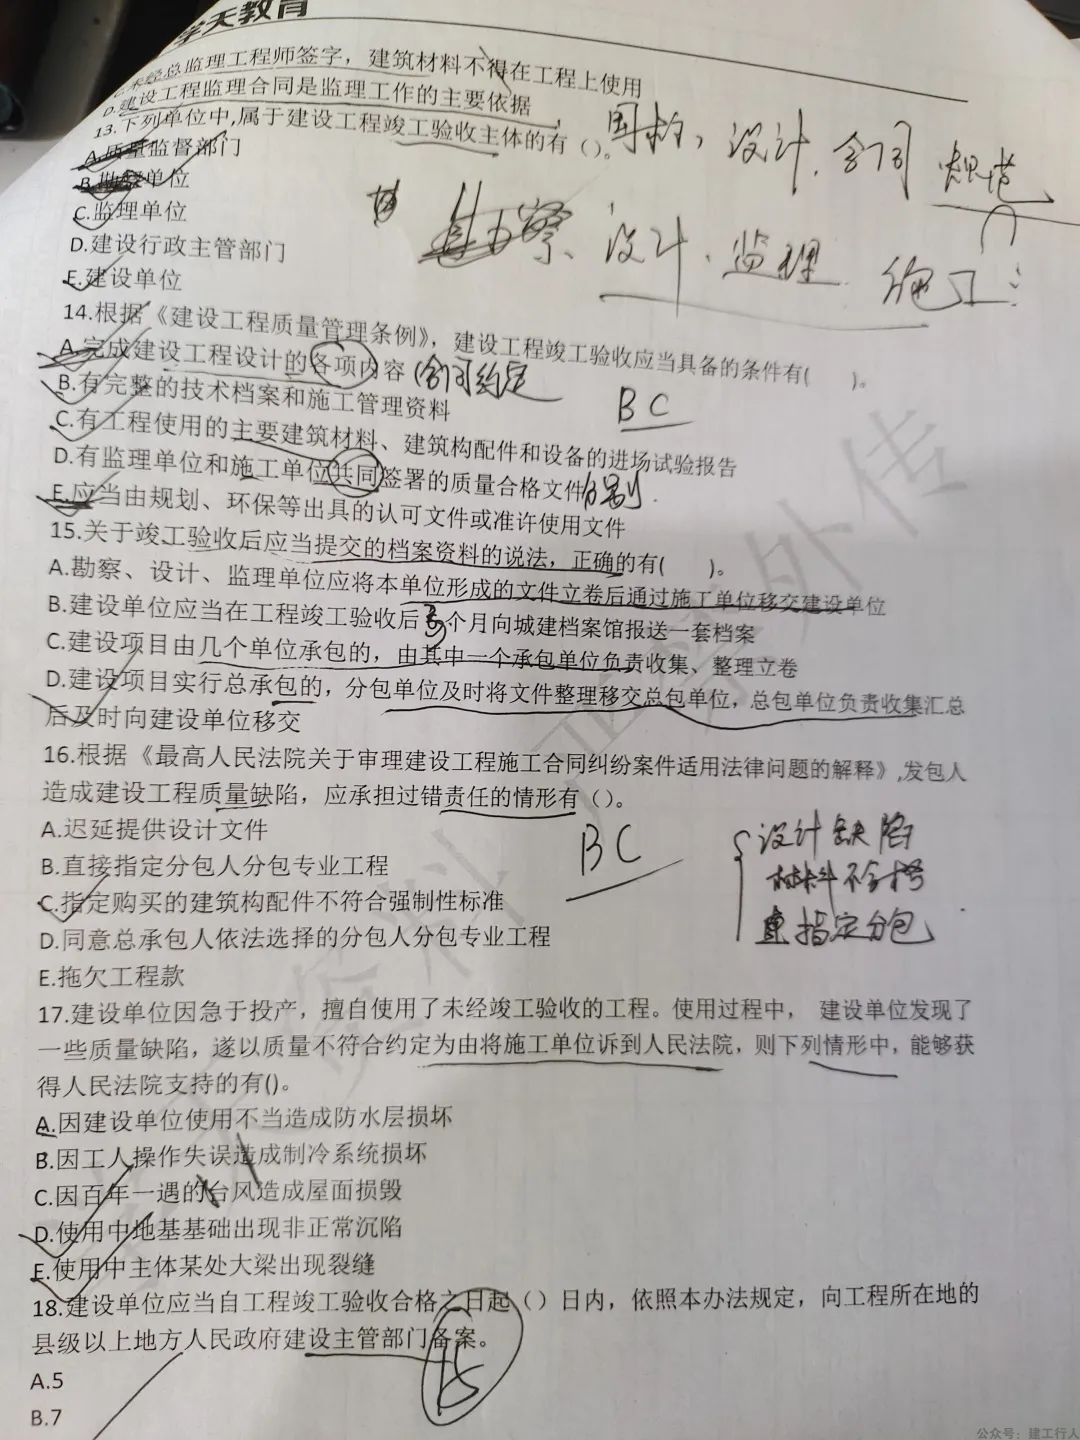 学天教育
C.未经总监理工程师签字，建筑材料不得在工程上使用
D.建设工程监理合同是监理工作的主要依据
13.下列单位中,属于建设工程竣工验收主体的有（）。
国标、设计、合同 规范
A.质量监督部门
B.勘察单位
C.监理单位
勘察、设计、监理 施工
D.建设行政主管部门
E.建设单位
14.根据《建设工程质量管理条例》，建设工程竣工验收应当具备的条件有( )。
A.完成建设工程设计的各项内容 (合同约定
B.有完整的技术档案和施工管理资料
BC
C.有工程使用的主要建筑材料、建筑构配件和设备的进场试验报告
D.有监理单位和施工单位共同签署的质量合格文件 分别
E.应当由规划、环保等出具的认可文件或准许使用文件
15.关于竣工验收后应当提交的档案资料的说法，正确的有( )。
A.勘察、设计、监理单位应将本单位形成的文件立卷后通过施工单位移交建设单位
B.建设单位应当在工程竣工验收后 个月向城建档案馆报送一套档案
C.建设项目由几个单位承包的，由其中一个承包单位负责收集、整理立卷
D.建设项目实行总承包的，分包单位及时将文件整理移交总包单位，总包单位负责收集汇总
后及时向建设单位移交
16.根据《最高人民法院关于审理建设工程施工合同纠纷案件适用法律问题的解释》,发包人
造成建设工程质量缺陷，应承担过错责任的情形有（）。
A.迟延提供设计文件
设计缺陷
B.直接指定分包人分包专业工程
BC
材料不合格
C.指定购买的建筑构配件不符合强制性标准
直指定分包
D.同意总承包人依法选择的分包人分包专业工程
E.拖欠工程款
17.建设单位因急于投产，擅自使用了未经竣工验收的工程。使用过程中， 建设单位发现了
一些质量缺陷，遂以质量不符合约定为由将施工单位诉到人民法院，则下列情形中，能够获
得人民法院支持的有()。
A.因建设单位使用不当造成防水层损坏
B.因工人操作失误造成制冷系统损坏
C.因百年一遇的台风造成屋面损毁
D.使用中地基基础出现非正常沉陷
E.使用中主体某处大梁出现裂缝
18.建设单位应当自工程竣工验收合格之日起（）日内，依照本办法规定，向工程所在地的
县级以上地方人民政府建设主管部门备案。
15
A.5
B.7
公众号：建工行人